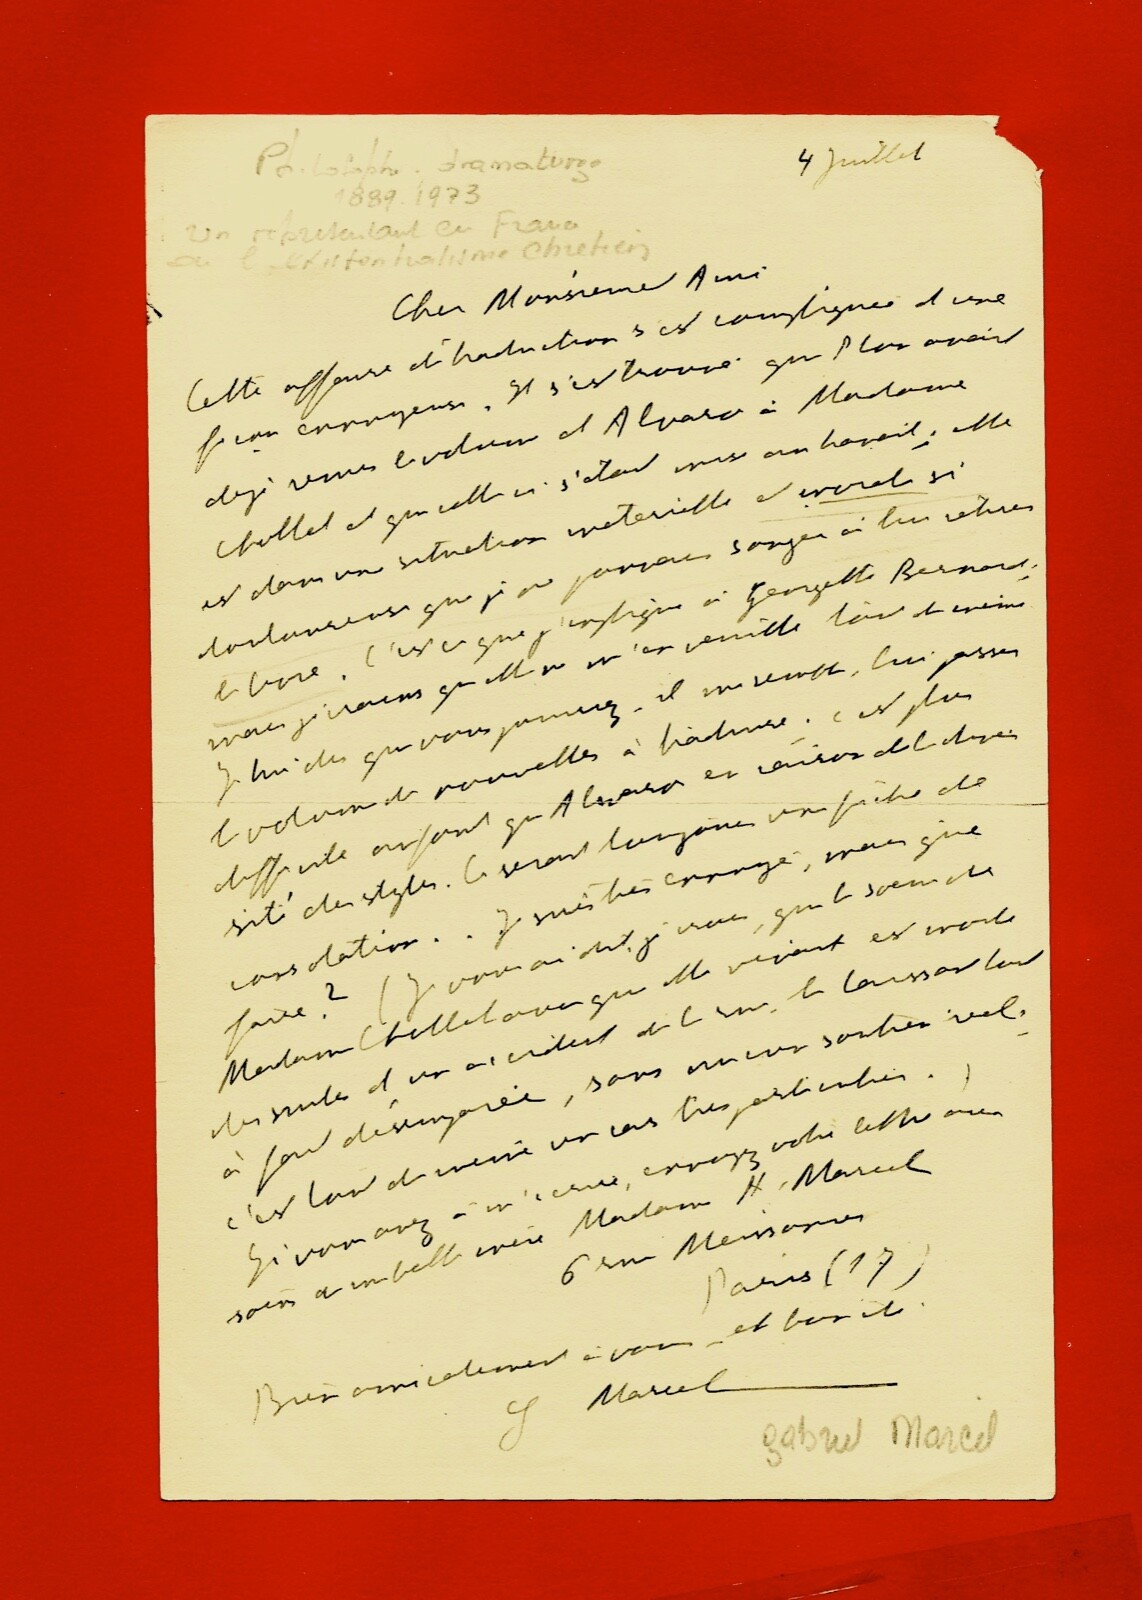 Philosophe. dramaturge
1889.1973
un représentant en France
de l'existentialisme chrétien
4 Juillet
Cher Monsieur Ami
Cette affaire de traduction s'est compliquée d'une
façon ennuyeuse. Il s'est trouvé que Plon avait
déjà remis le volume d'Alvaro à Madame
Chollet et que celle ci s'était mise au travail; elle
est dans une situation matérielle et morale si
douloureuse que je ne pouvais songer à lui retirer
le livre. C'est ce que j'explique à Georgette Bernard;
mais je crains qu'elle ne m'en veuille tout de même
Je lui dis que vous pourrez, il me semble, lui passer
le volume de nouvelles à traduire; c'est plus
difficile au fond qu'Alvaro en raison de la diver
sité des styles. Ce serait toujours une fiche de
consolation.. Je suis très ennuyé, mais que
faire? (Je vous ai dit, je crois, que la soeur de
Madame Chollet avec qui elle vivait est morte
des suites d'un accident de la rue, la laissant tout
à fait désemparée, sans aucun soutien réel;
c'est tout de même un cas très particulier.)
Si vous avez à m'écrire, envoyez votre lettre aux
soins de ma belle mère Madame H. Marcel
6 rue Meissonier
Paris (17)
Bien amicalement à vous
G Marcel
gabriel Marcel